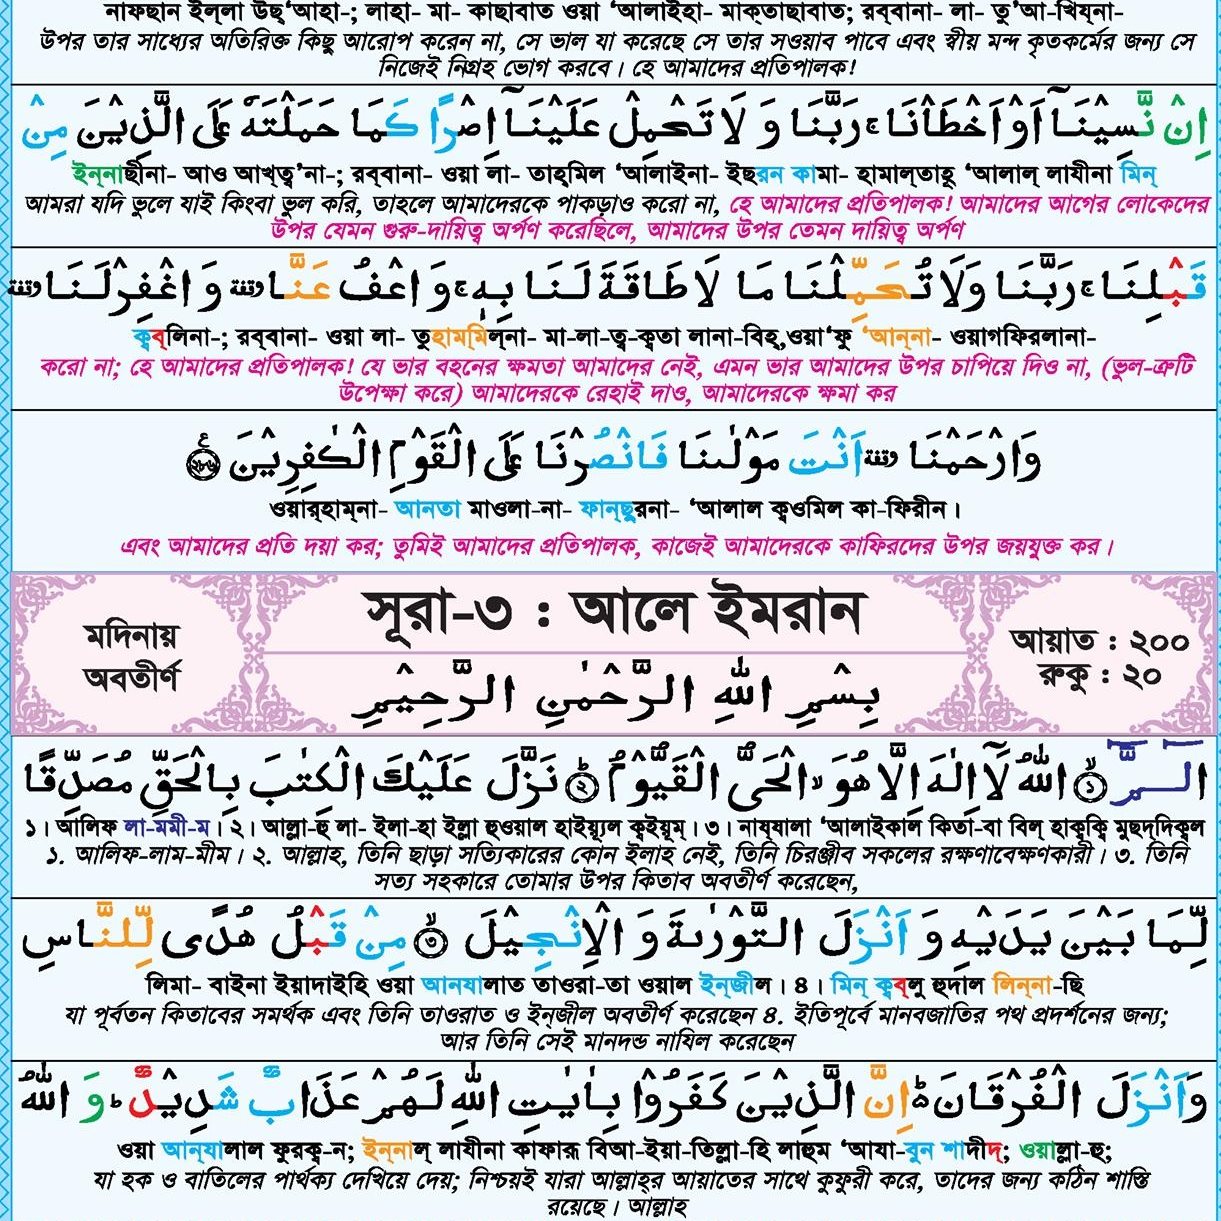 নাফছান ইল্লা উছ্‘আহা-; লাহা- মা- কাছাবাত ওয়া ‘আলাইহা- মাক্তাছাবাত; রব্বানা- লা- তু’আ-খিয্না-
উপর তার সাধ্যের অতিরিক্ত কিছু আরোপ করেন না, সে ভাল যা করেছে সে তার সওয়াব পাবে এবং স্বীয় মন্দ কৃতকর্মের জন্য সে
নিজেই নিগ্রহ ভোগ করবে। হে আমাদের প্রতিপালক!
اِنْ نَّسِيْنَاۤ اَوْ اَخْطَاْنَا ۚ رَبَّنَا وَ لَا تَحْمِلْ عَلَيْنَاۤ اِصْرًا كَمَا حَمَلْتَهٗ عَلَى الَّذِيْنَ مِنْ
ইন্নাছীনা- আও আখ্ত্ব’না-; রব্বানা- ওয়া লা- তাহ্মিল ‘আলাইনা- ইছরন কামা- হামাল্তাহূ ‘আলাল্ লাযীনা মিন্
আমরা যদি ভুলে যাই কিংবা ভুল করি, তাহলে আমাদেরকে পাকড়াও করো না, হে আমাদের প্রতিপালক! আমাদের আগের লোকেদের
উপর যেমন গুরু-দায়িত্ব অর্পণ করেছিলে, আমাদের উপর তেমন দায়িত্ব অর্পণ
قَبْلِنَا ۚ رَبَّنَا وَلَا تُحَمِّلْنَا مَا لَا طَاقَةَ لَنَا بِهٖ ۚ وَ اعْفُ عَنَّا وقفة وَ اغْفِرْ لَنَا وقفة
ক্বব্লিনা-; রব্বানা- ওয়া লা- তুহাম্মিল্না- মা-লা-ত্ব-ক্বতা লানা-বিহ্,ওয়া‘ফু ‘আন্না- ওয়াগফিরলানা-
করো না; হে আমাদের প্রতিপালক! যে ভার বহনের ক্ষমতা আমাদের নেই, এমন ভার আমাদের উপর চাপিয়ে দিও না, (ভুল-ত্রুটি
উপেক্ষা করে) আমাদেরকে রেহাই দাও, আমাদেরকে ক্ষমা কর
وَارْحَمْنَا وقفة اَنْتَ مَوْلٰىنَا فَانْصُرْنَا عَلَى الْقَوْمِ الْكٰفِرِيْنَ ع ۲۸۶
ওয়ার্হাম্না- আনতা মাওলা-না- ফান্ছুরনা- ‘আলাল ক্বওমিল কা-ফিরীন।
এবং আমাদের প্রতি দয়া কর; তুমিই আমাদের প্রতিপালক, কাজেই আমাদেরকে কাফিরদের উপর জয়যুক্ত কর।
সূরা-৩ : আলে ইমরান
মদিনায়
অবতীর্ণ
আয়াত : ২০০
রুকু : ২০
بِسْمِ اللّٰهِ الرَّحْمٰنِ الرَّحِيْمِ
الٓـمّٓ ۙ ۱ اللّٰهُ لَاۤ اِلٰهَ اِلَّا هُوَ ۙ الْحَىُّ الْقَيُّوْمُ ؕ ۲ نَزَّلَ عَلَيْكَ الْكِتٰبَ بِالْحَقِّ مُصَدِّقًا
১। আলিফ লা-মমী-ম। ২। আল্লা-হু লা- ইলা-হা ইল্লা হুওয়াল হাইয়্যুল ক্বইয়ূম্। ৩। নায্যালা ‘আলাইকাল কিতা-বা বিল্ হাক্বক্বি মুছদ্দিক্বল
১. আলিফ-লাম-মীম। ২. আল্লাহ, তিনি ছাড়া সত্যিকারের কোন ইলাহ নেই, তিনি চিরঞ্জীব সকলের রক্ষণাবেক্ষণকারী। ৩. তিনি
সত্য সহকারে তোমার উপর কিতাব অবতীর্ণ করেছেন,
لِّمَا بَيْنَ يَدَيْهِ وَ اَنْزَلَ التَّوْرٰىةَ وَ الْاِنْجِيْلَ ۙ ۳ مِنْ قَبْلُ هُدًى لِّلنَّاسِ
লিমা- বাইনা ইয়াদাইহি ওয়া আনযালাত তাওরা-তা ওয়াল ইন্জীল। ৪। মিন্ ক্বব্লু হুদাল লিন্না-ছি
যা পূর্বতন কিতাবের সমর্থক এবং তিনি তাওরাত ও ইন্জীল অবতীর্ণ করেছেন ৪. ইতিপূর্বে মানবজাতির পথ প্রদর্শনের জন্য;
আর তিনি সেই মানদন্ড নাযিল করেছেন
وَاَنْزَلَ الْفُرْقَانَ ؕ اِنَّ الَّذِيْنَ كَفَرُوْا بِاٰيٰتِ اللّٰهِ لَهُمْ عَذَابٌ شَدِيْدٌ ؕ وَ اللّٰهُ
ওয়া আন্যালাল ফুরক্ব-ন; ইন্নাল্ লাযীনা কাফারূ বিআ-ইয়া-তিল্লা-হি লাহুম ‘আযা-বুন শাদীদ্; ওয়াল্লা-হু;
যা হক ও বাতিলের পার্থক্য দেখিয়ে দেয়; নিশ্চয়ই যারা আল্লাহ্র আয়াতের সাথে কুফুরী করে, তাদের জন্য কঠিন শাস্তি
রয়েছে। আল্লাহ